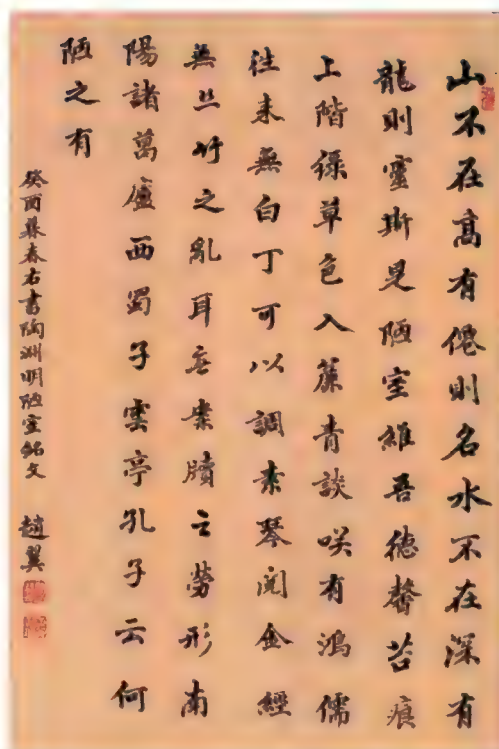 山不在高有僊則名水不在深有
龍則靈斯是陋室維吾德馨苔痕
上階緑草色入簾青談咲有鴻儒
往来無白丁可以調素琴閲金經
無丝竹之亂耳無案牘之勞形南
陽諸葛廬西蜀子雲亭孔子云何
陋之有
癸酉暮春右書陶淵明陋室銘文 趙翼